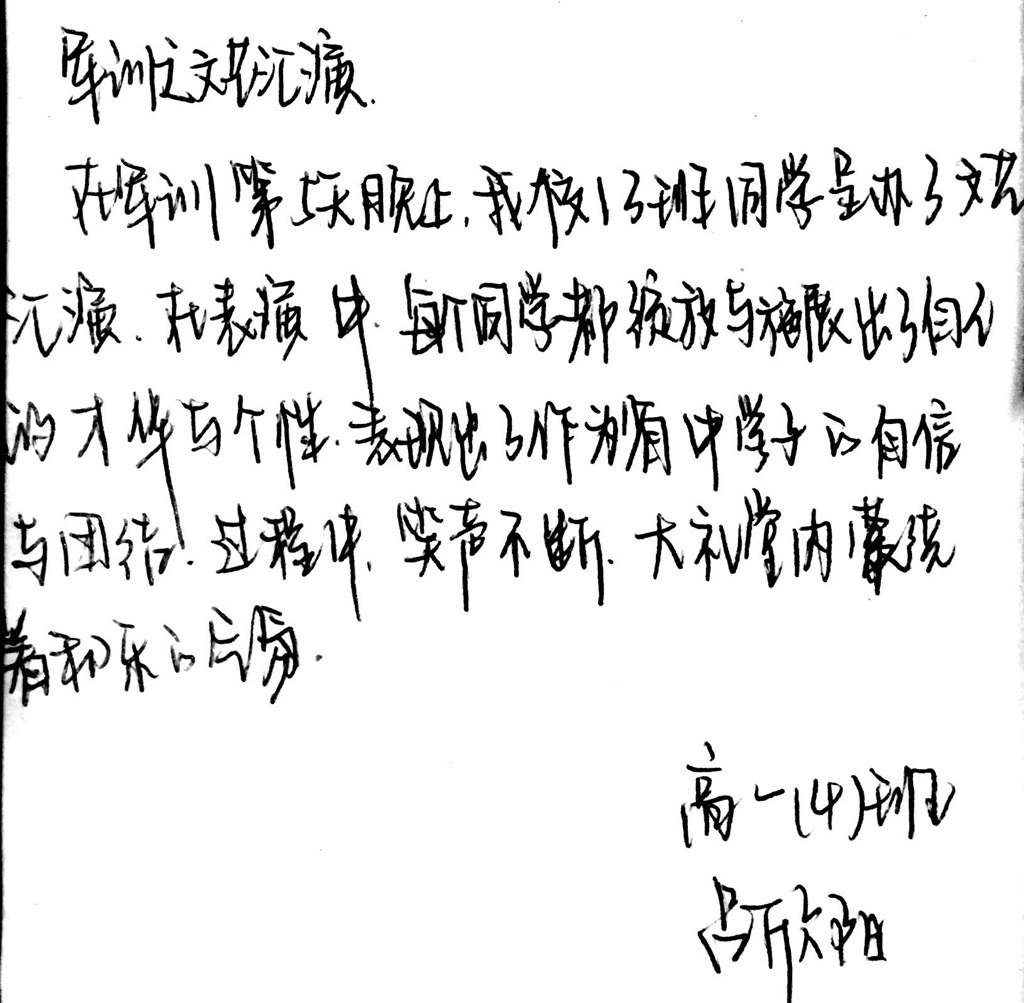 军训之文艺汇演.
在军训第5天晚上,我校13班同学呈办了文艺
汇演.在表演中.每个同学都绽放与施展出了自个
的才华与个性.表现出了作为省中学子的自信
与团结.过程中,笑声不断.大礼堂内萦绕
着和乐的气氛.
高一(4)班
吕欣阳